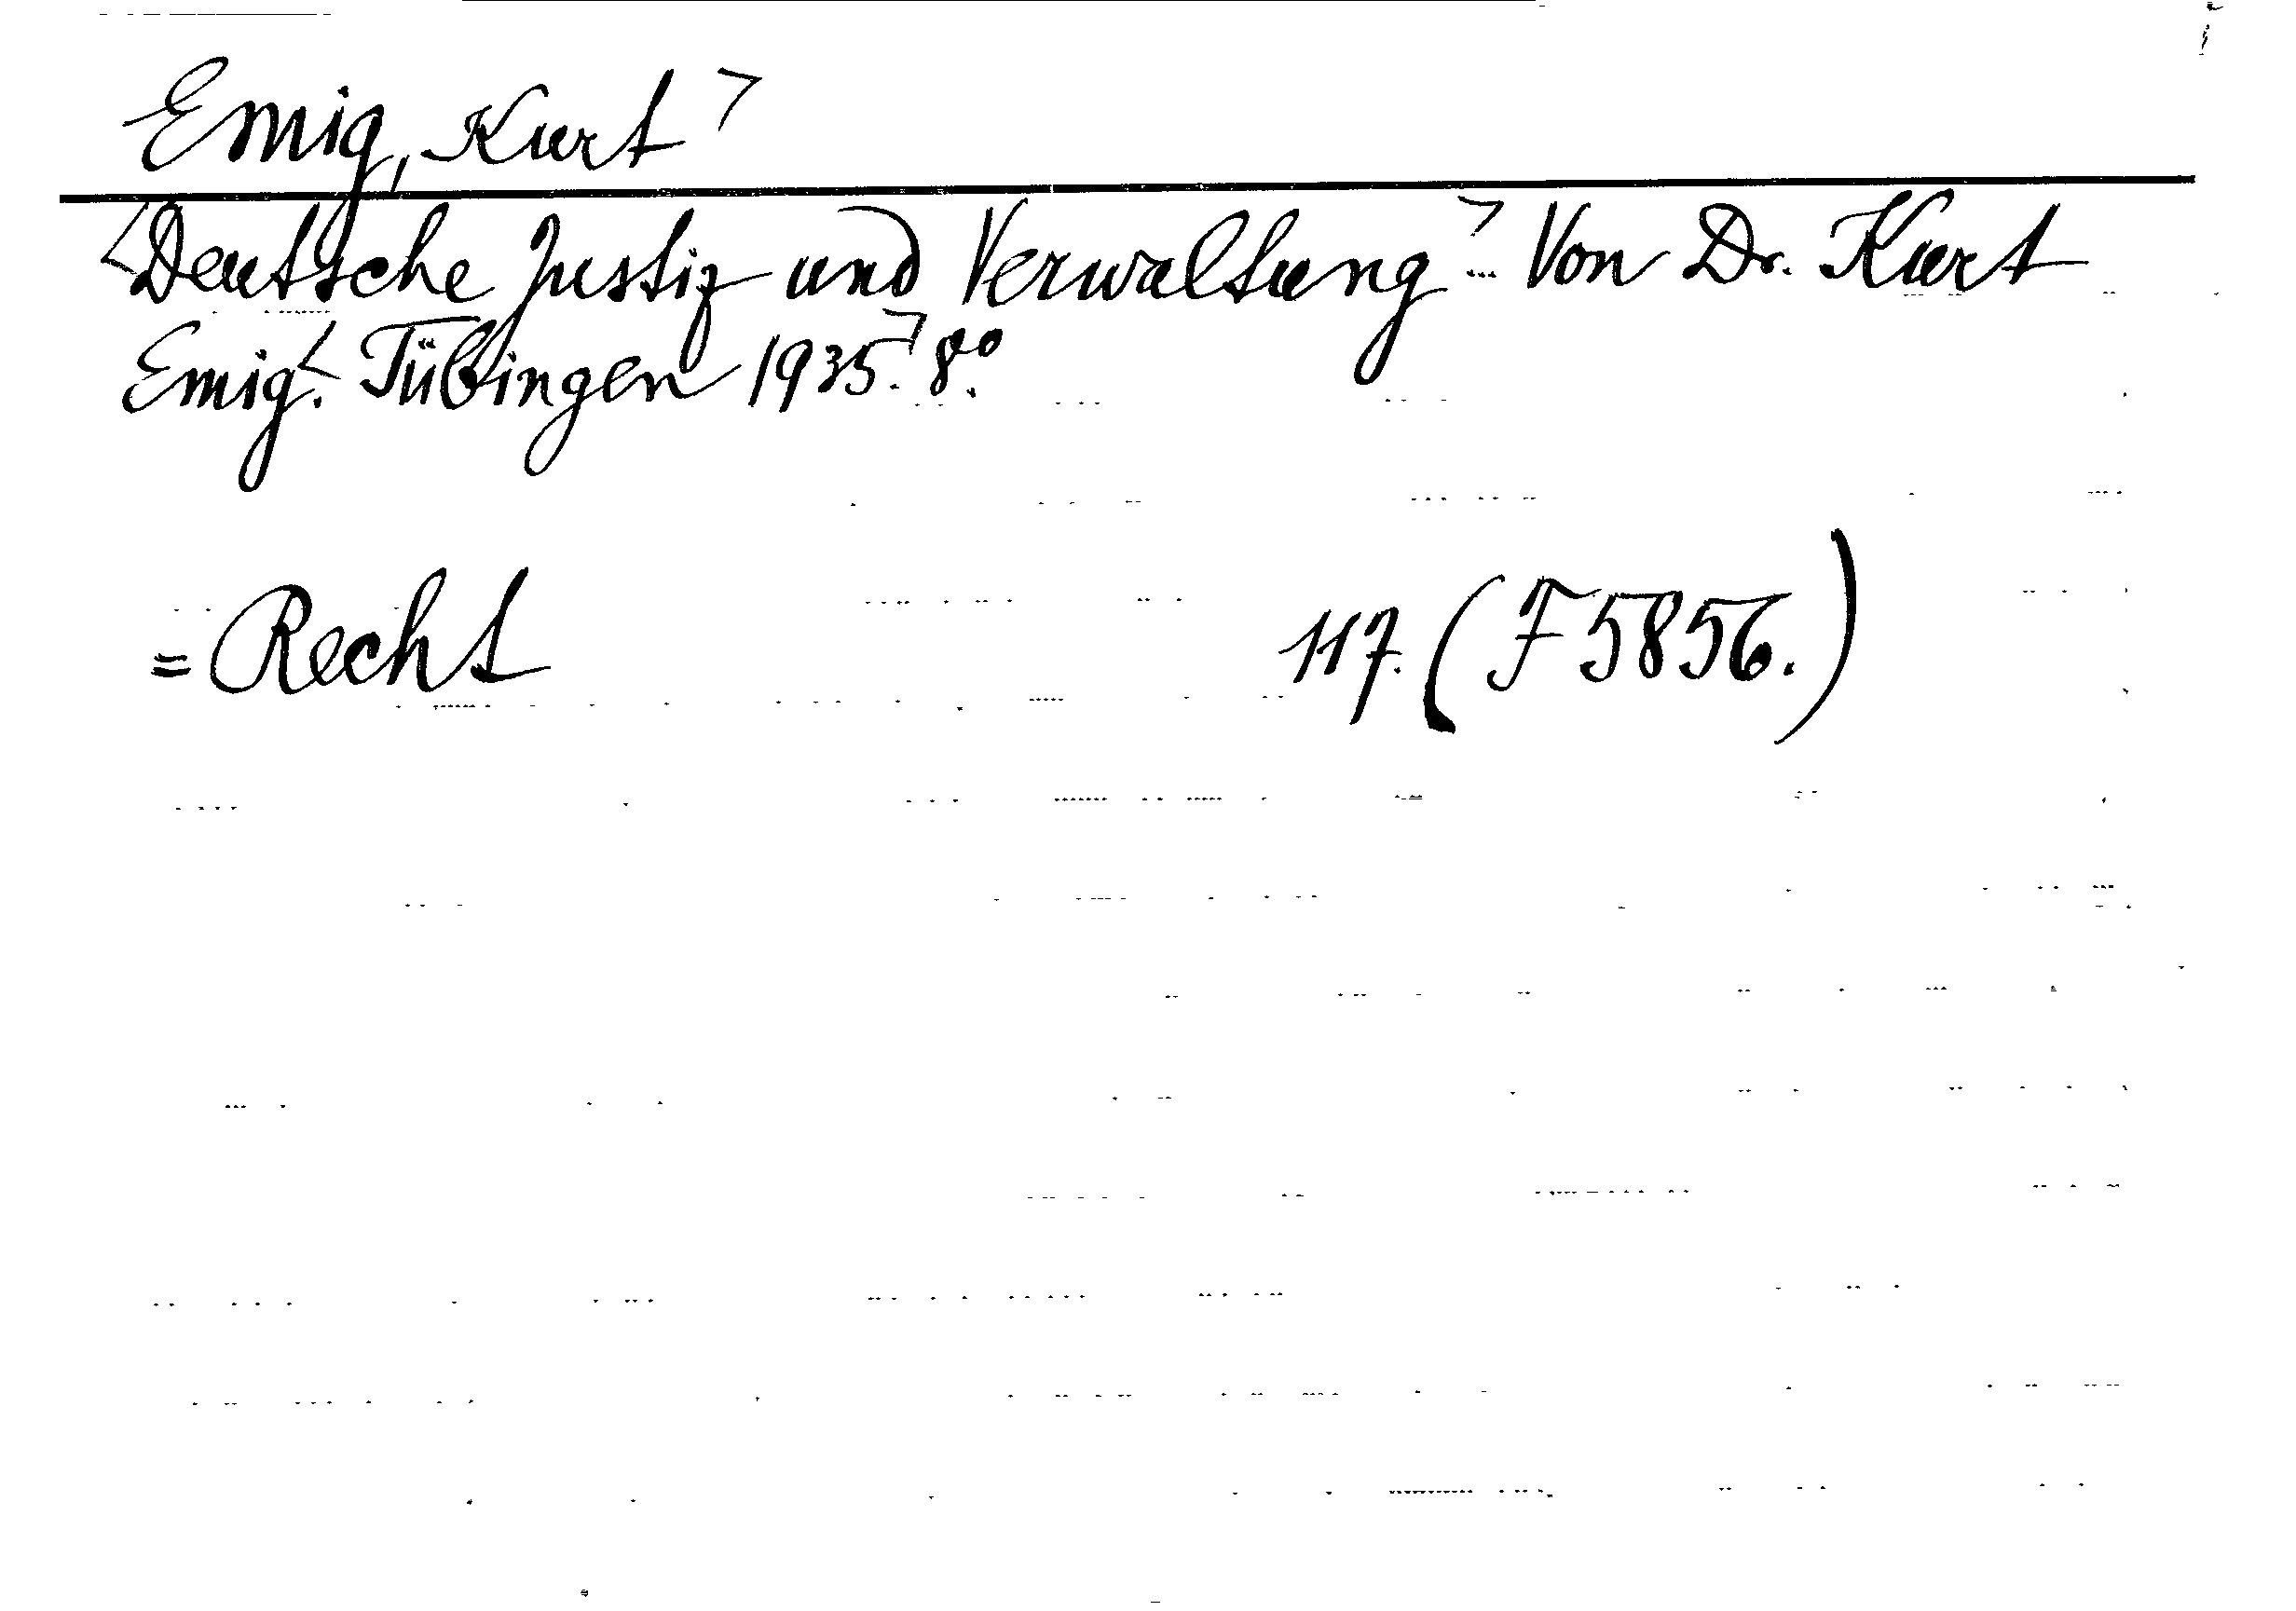 Emig, Kurt
Deutsche Justiz und Verwaltung. Von Dr. Kurt
Emig. Tübingen 1935. 8°.
= Recht 117. (F 5856.)